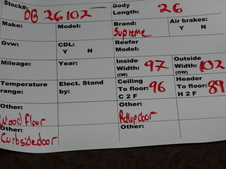 Stock# OB 26102 Body Length: 26
Make: Model: Brand: Supreme Air brakes: Y N
Gvw: CDL: Y N Reefer Model:
Mileage: Year: Inside Width: (IW) 97 Outside Width: (OW) 102
Temperature range: Elect. Stand by: Ceiling To floor: C 2 F 96 Header To floor: H 2 F 89
Other: Wood Floor Other: Rollup Door
Other: Curbsidedoor Other: